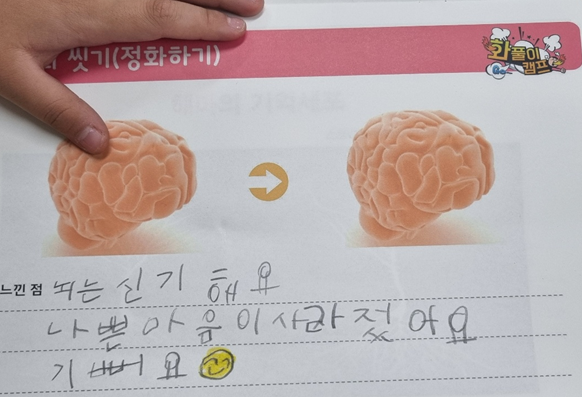 씻기(정화하기)
화풀이
캠프
느낀 점 뇌는 신기해요
나쁜 마음이 사라젔아요
기뻐요